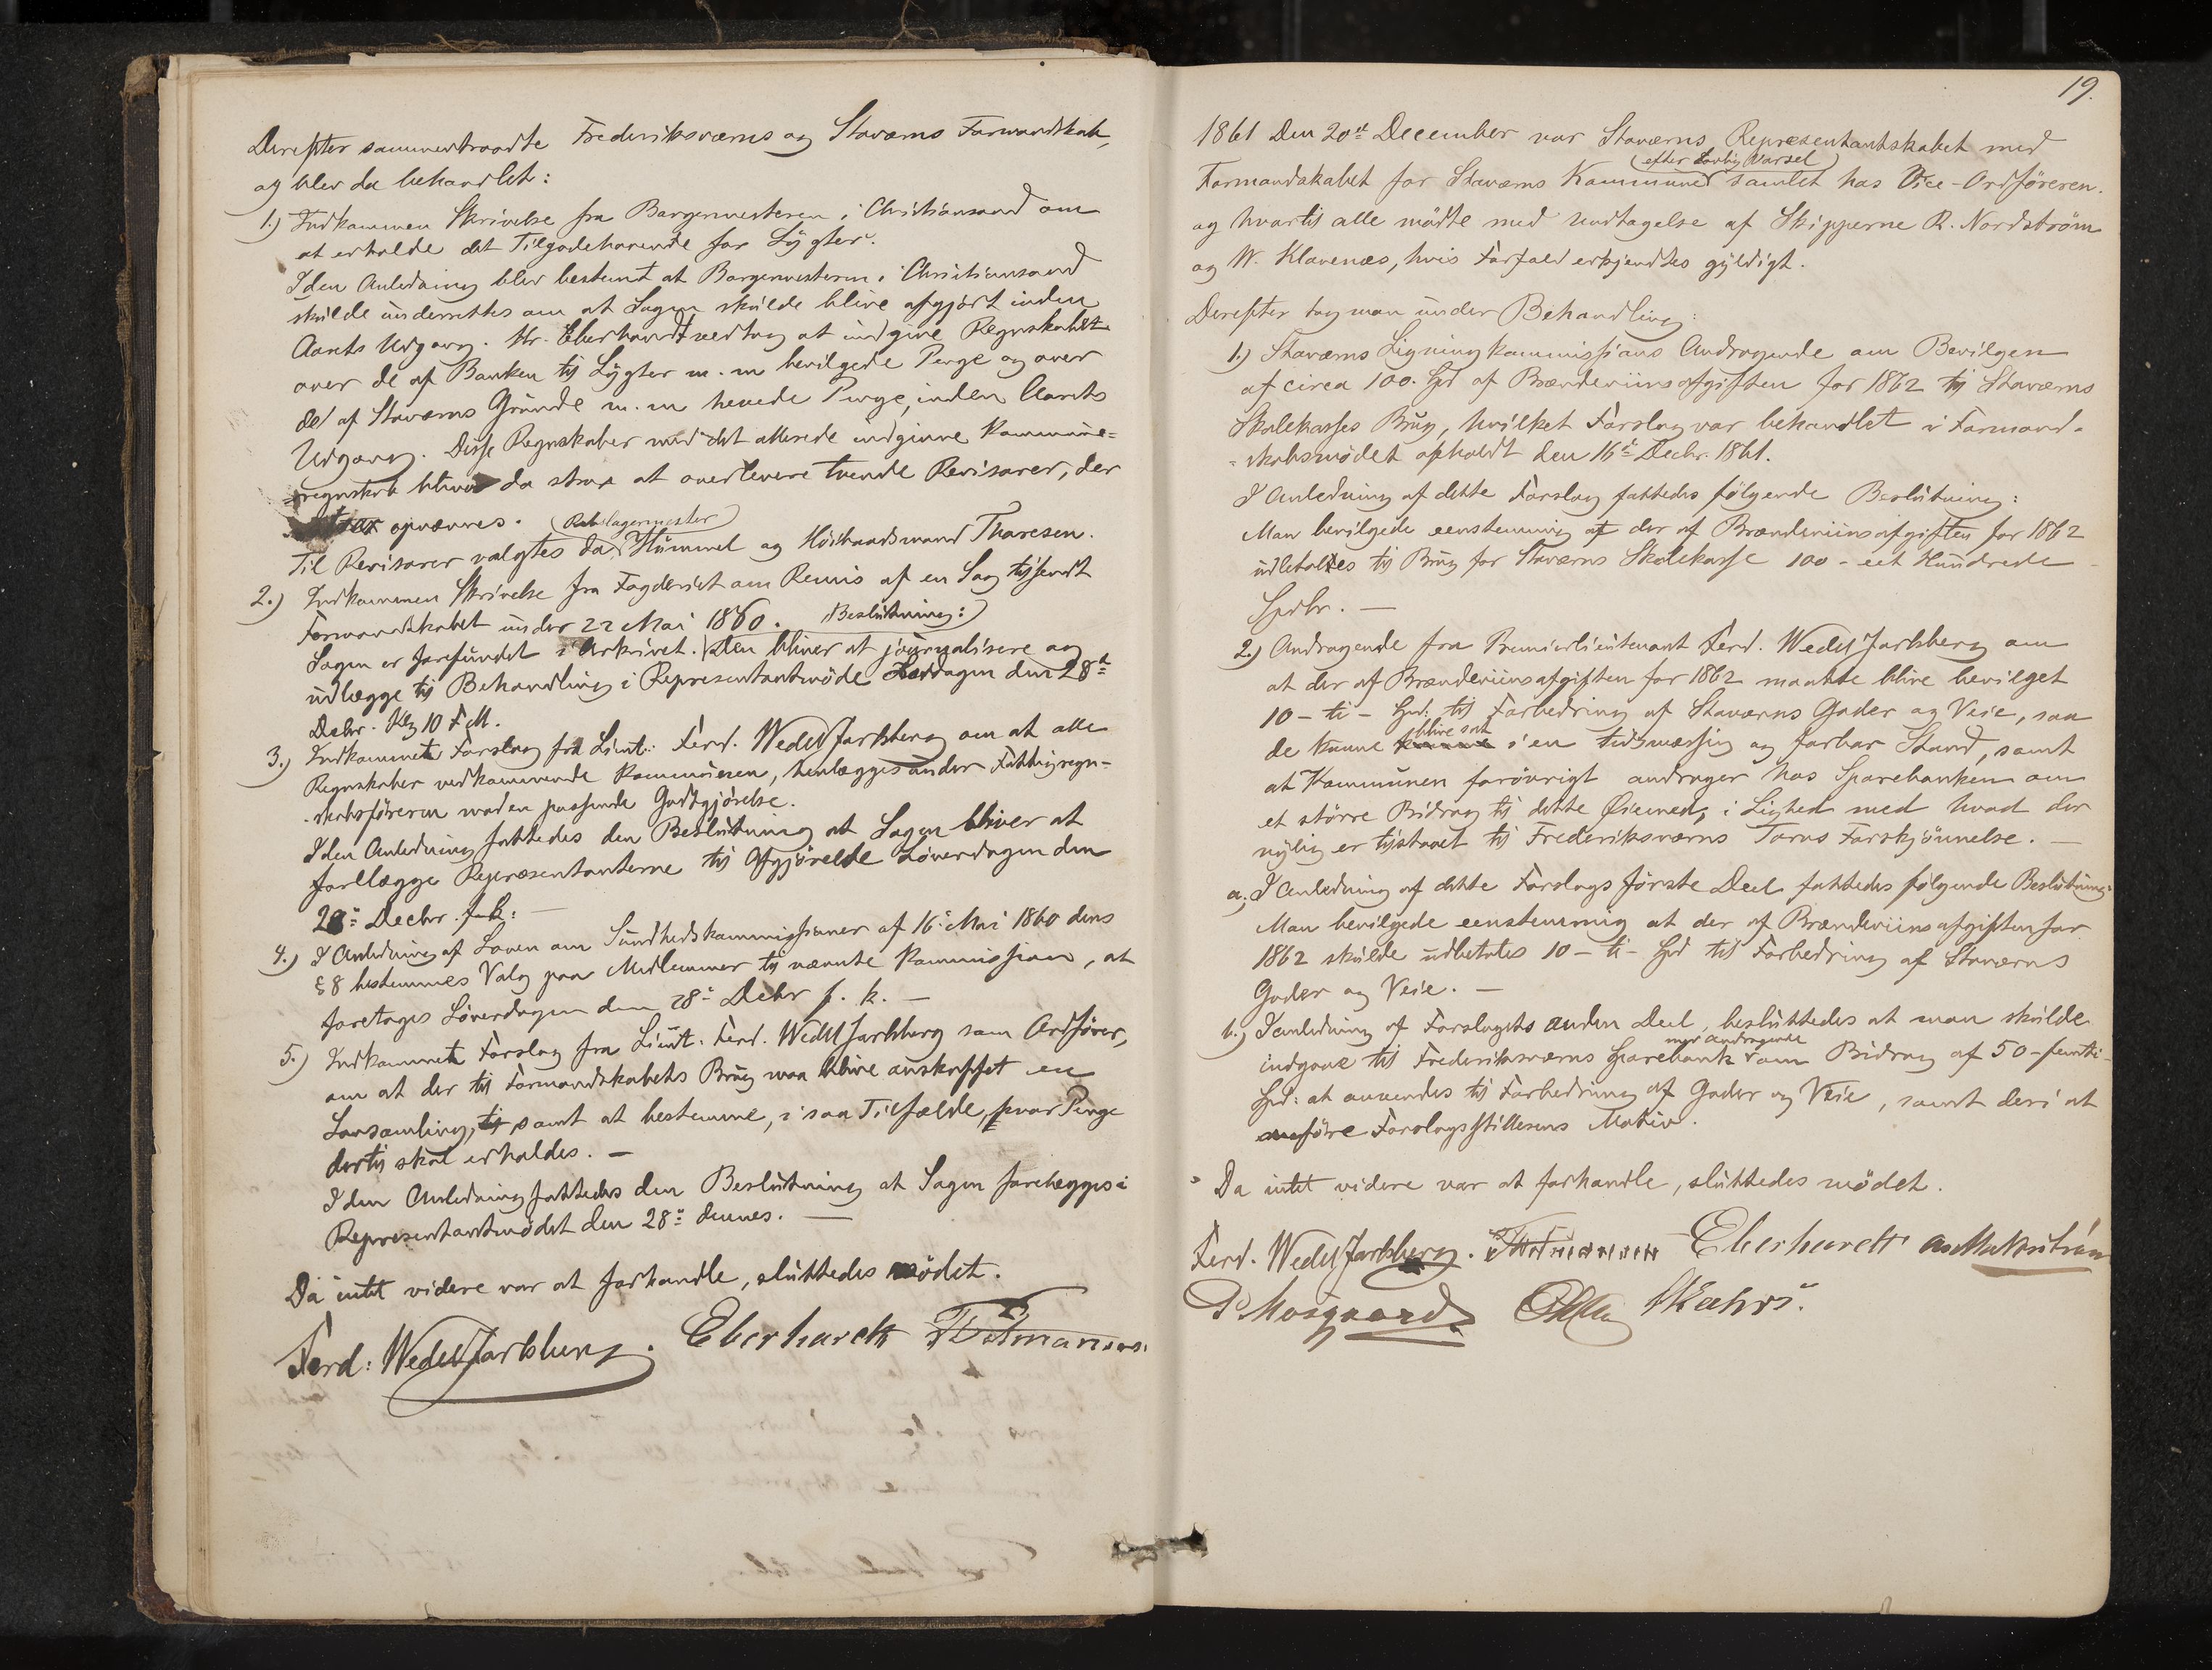 Derefter sammentraadte Frederiksværns og Staværns Formandskab,
og blev da behandlet:
1.) Indkommen Skrivelse fra Borgermesteren i Christiansand om
at erholde det Tilgodehavende for Lygter.
I den Anledning blev bestemt at Borgermesteren i Christiansand
skulde underrettes om at Sagen skulde blive afgjort inden
Aarets Udgang. Hr. Eberhardt vedtog at indgive Regnskabet
over de af Banken til Lygter m. m bevilgede Penge og over
de af Staværns Grunde m. m hævede Penge, inden Aarets
Udgang. Disse Regnskaber med det allerede indgivne Kommune=
=regnskab bliver da strax at overlevere tvende Revisorer, der
strax opnævnes.
(Rebslagermester)
Til Revisorer valgtes da Hummel og Høibaadsmand Thoresen.
2.) Indkommen Skrivelse fra Fogderiet om Remis af en Sag tilsendt
Formandskabet under 22 Mai 1860. Beslutning:)
Sagen er forefundet i Arkivet. Den bliver at journalisere og
udlægge til Behandling i Representantmøde Løverdagen den 28de
Decbr. Kl 10 F.M.
3.) Indkommet Forslag fra Lieut. Ferd. Wedel Jarlsberg om at alle
Regnskaber vedkommende Kommunen, henlægges under Fattigregn-
-skabsføreren mod en passende Godtgjørelse.
I den Anledning fattedes den Beslutning at Sagen bliver at
forelægge Representanterne til Afgjørelse Løverdagen den
28de Decbr. f. k: —
4.) I Anledning af Loven om Sundhedskommissioner af 16de Mai 1860 dens
§ 8 bestemmes Valg paa Medlemmer til nævnte Kommission, at
foretages Løverdagen den 28de Decbr f. k. —
5.) Indkommet Forslag fra Lieut. Ferd. Wedel Jarlsberg som Ordfører,
om at der til Formandskabets Brug maa blive anskaffet en
Lovsamling, samt at bestemme, i saa Tilfælde, hvor Penge
dertil skal erholdes. —
I den Anledning fattedes den Beslutning at Sagen forelægges i
Representantmødet den 28de dennes. —
Da intet videre var at forhandle, sluttedes mødet.
Ferd: Wedel Jarlsberg. Eberhardt
19.
1861 Den 20de December var Staværns Repræsentantskabet med
(efter lovlig Varsel)
Formandskabet for Staværns Kommune samlet hos Vice-Ordføreren.
og hvortil alle mødte med Undtagelse af Skipperne R. Nordstrøm
og W. Klavenæs, hvis Forfald erkjendtes gyldigt.
Derefter tog man under Behandling:
1.) Staværns Ligningkommissions Andragende om Bevilgen
af circa 100. Spd af Brændeviinsafgiften for 1862 til Staværns
Skolekasses Brug, hvilket Forslag var behandlet i Formand-
-skabsmødet afholdt den 16de Decbr. 1861.
I Anledning af dette Forslag fattedes følgende Beslutning:
Man bevilgede eenstemmig at der af Brændeviinsafgiften for 1862
udbetales til Brug for Staværns Skolekasse 100 - eet Hundrede
Spdlr. —
2.) Andragende fra Premierlieutenant Ferd. Wedel Jarlsberg om
at der af Brændeviinsafgiften for 1862 maatte blive bevilget
10 - ti - Spd: til Forbedring af Staværns Gader og Veie, saa
blive sat
de kunne i en tidsmæssig og forbar Stand, samt
at Kommunen forøvrigt andrager hos Sparebanken om
et større Bidrag til dette Øiemed, i Lighed med hvad der
nylig er tilstaaet til Frederiksværns Torvs Forskjønnelse. —
a.) I Anledning af dette Forslags første Deel fattedes følgende Beslutning:
Man bevilgede eenstemmig at der af Brændeviinsafgiften for
1862 skulde udbetales 10 - ti - Spd til Forbedring af Staværns
Gader og Veie. —
b.) I anledning af Forslagets anden Deel, besluttedes at man skulde
med Andragende
indgaae til Frederiksværns Sparebank om Bidrag af 50 - femti -
Spd: at anvendes til Forbedring af Gader og Veie, samt deri at
anføre Forslagsstillerens Motiv.
Da intet videre var at forhandle, sluttedes mødet.
Ferd. Wedel Jarlsberg. Eberhardt
P Mosgaard